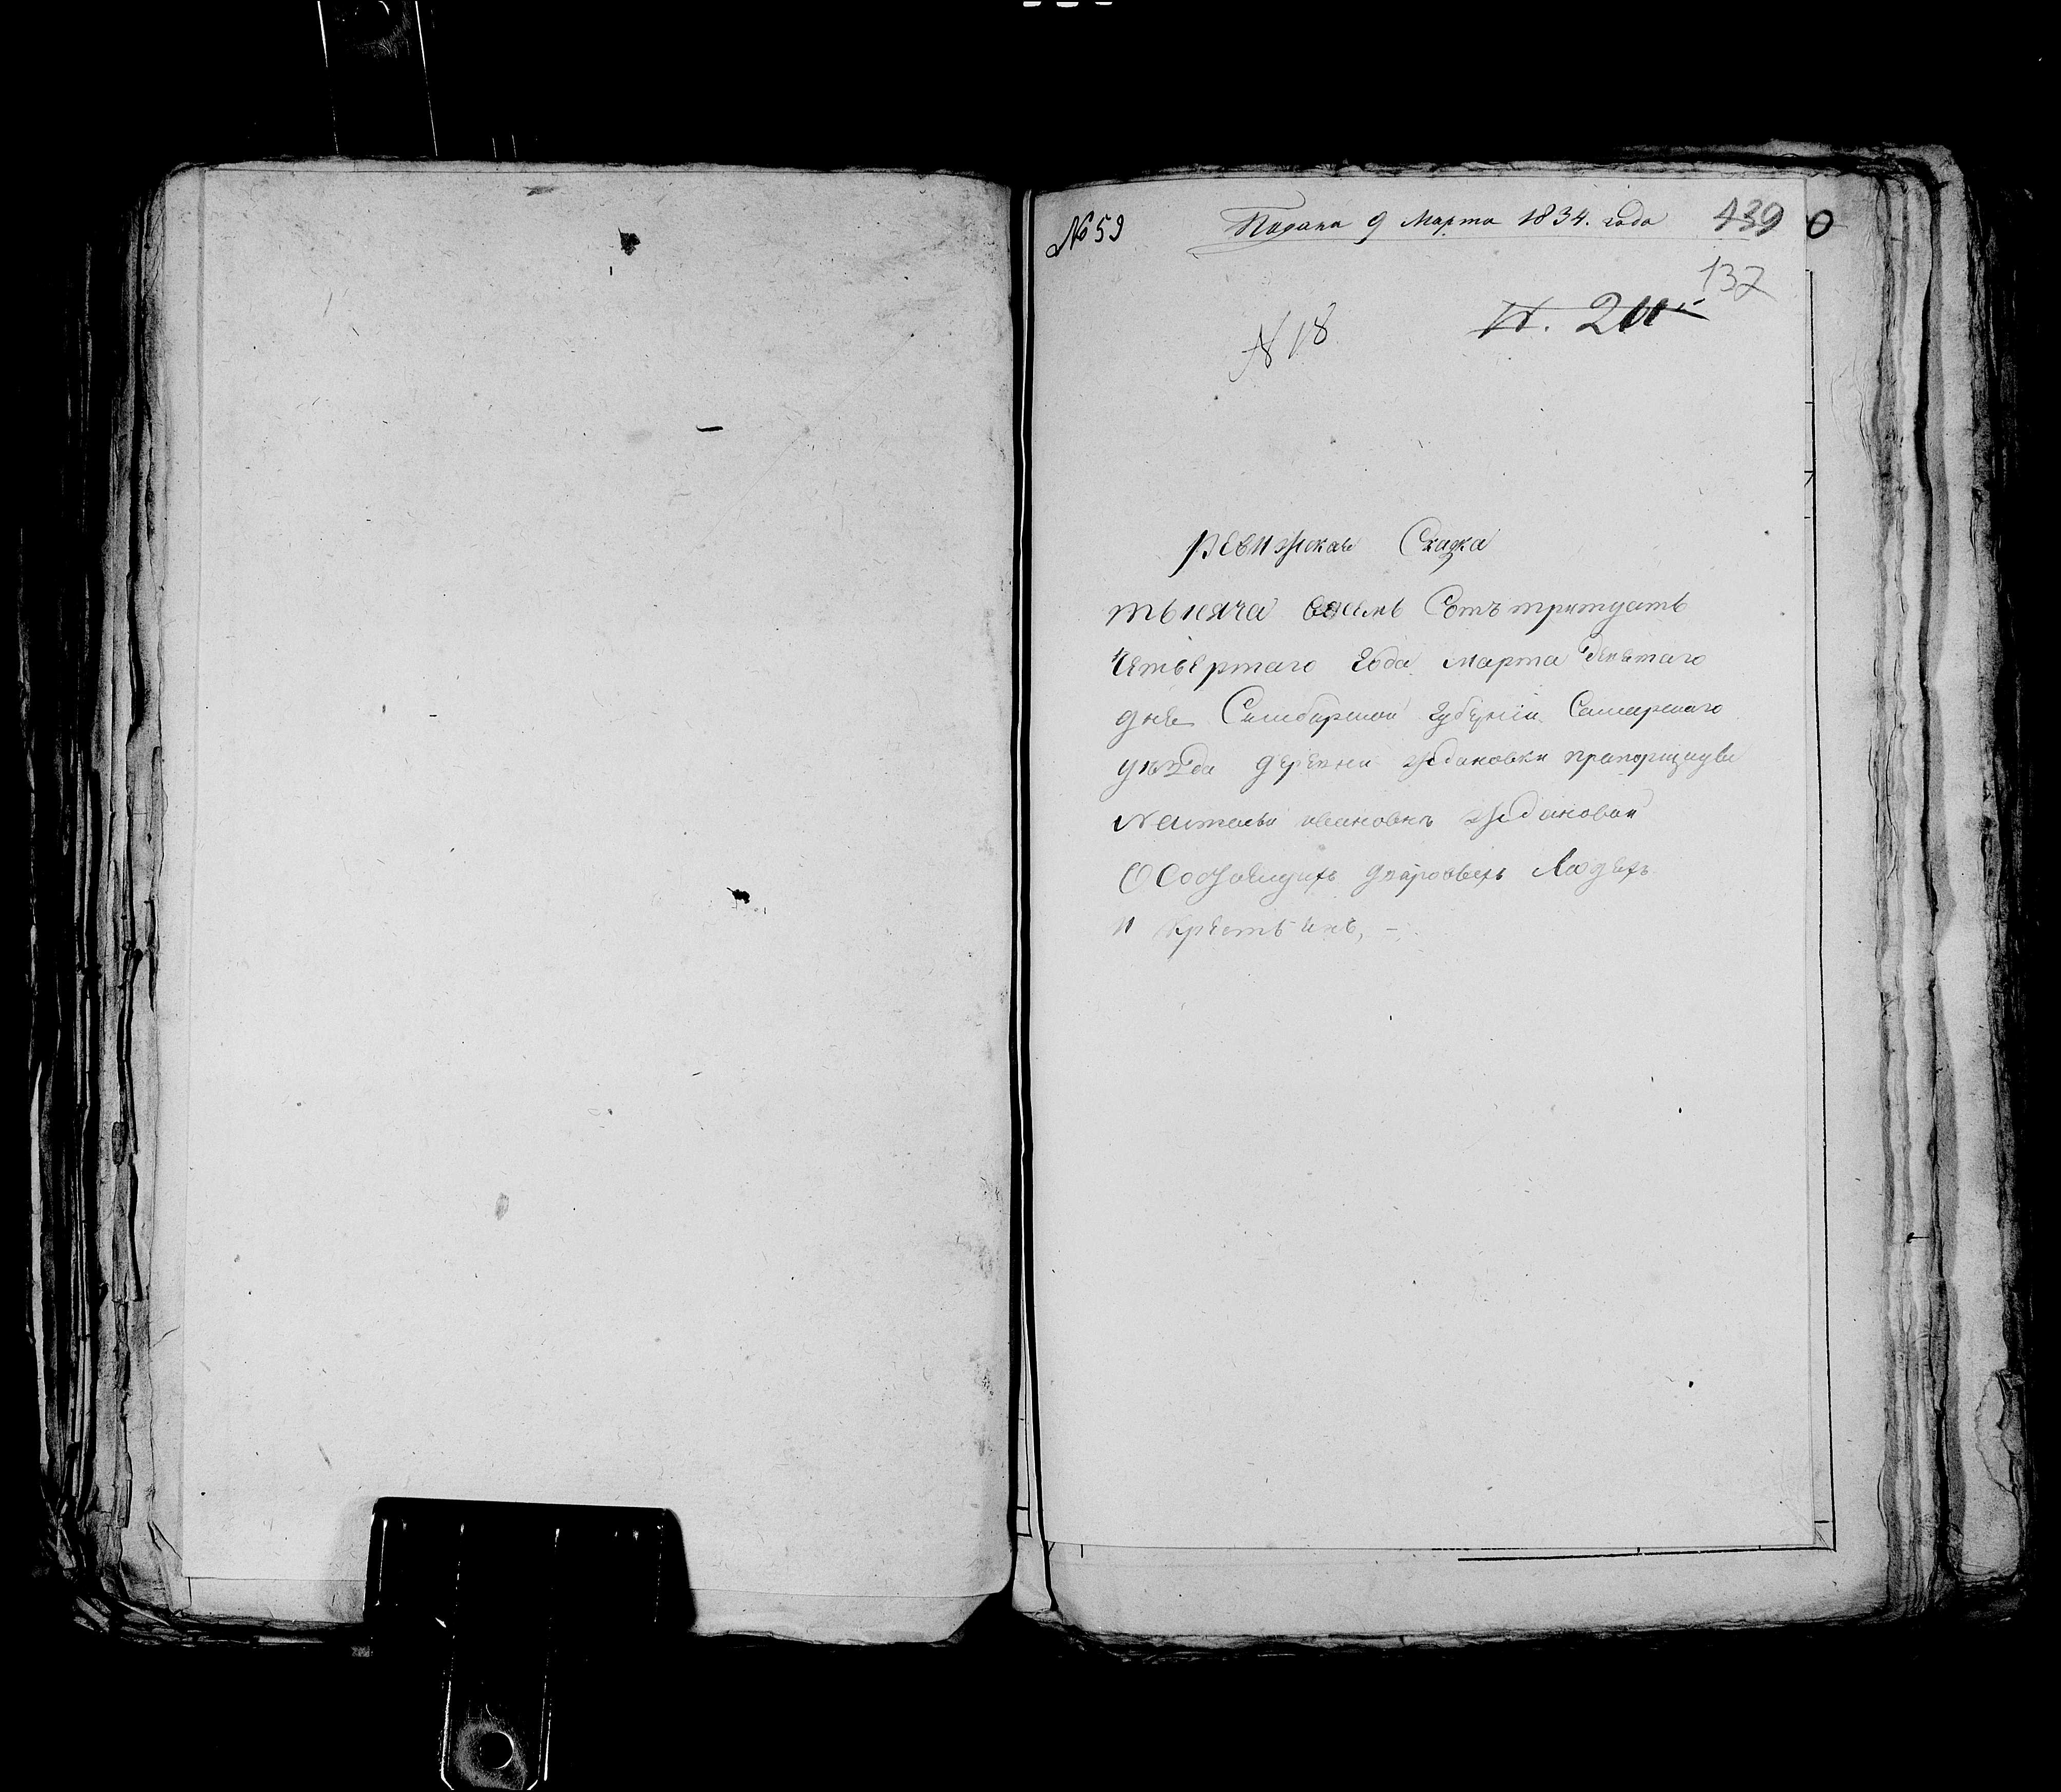 № 59 Подана 9 Марта 1834. года 439
137
N 18
ревижская Сказка
тысяча восемь Сотъ тритцать
Четвертаго Года марта девятаго
дня Симбирской губернiи Самарскаго
уезда деревни Ждановки прапорщицы
Натальи ивановны Ждановой
О Состоящихъ дваровыхъ Людехъ
и крестьянъ, –